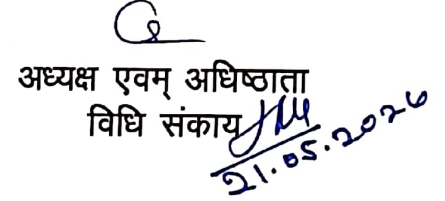 अध्यक्ष एवम् अधिष्ठाता
विधि संकाय
21.05.2026